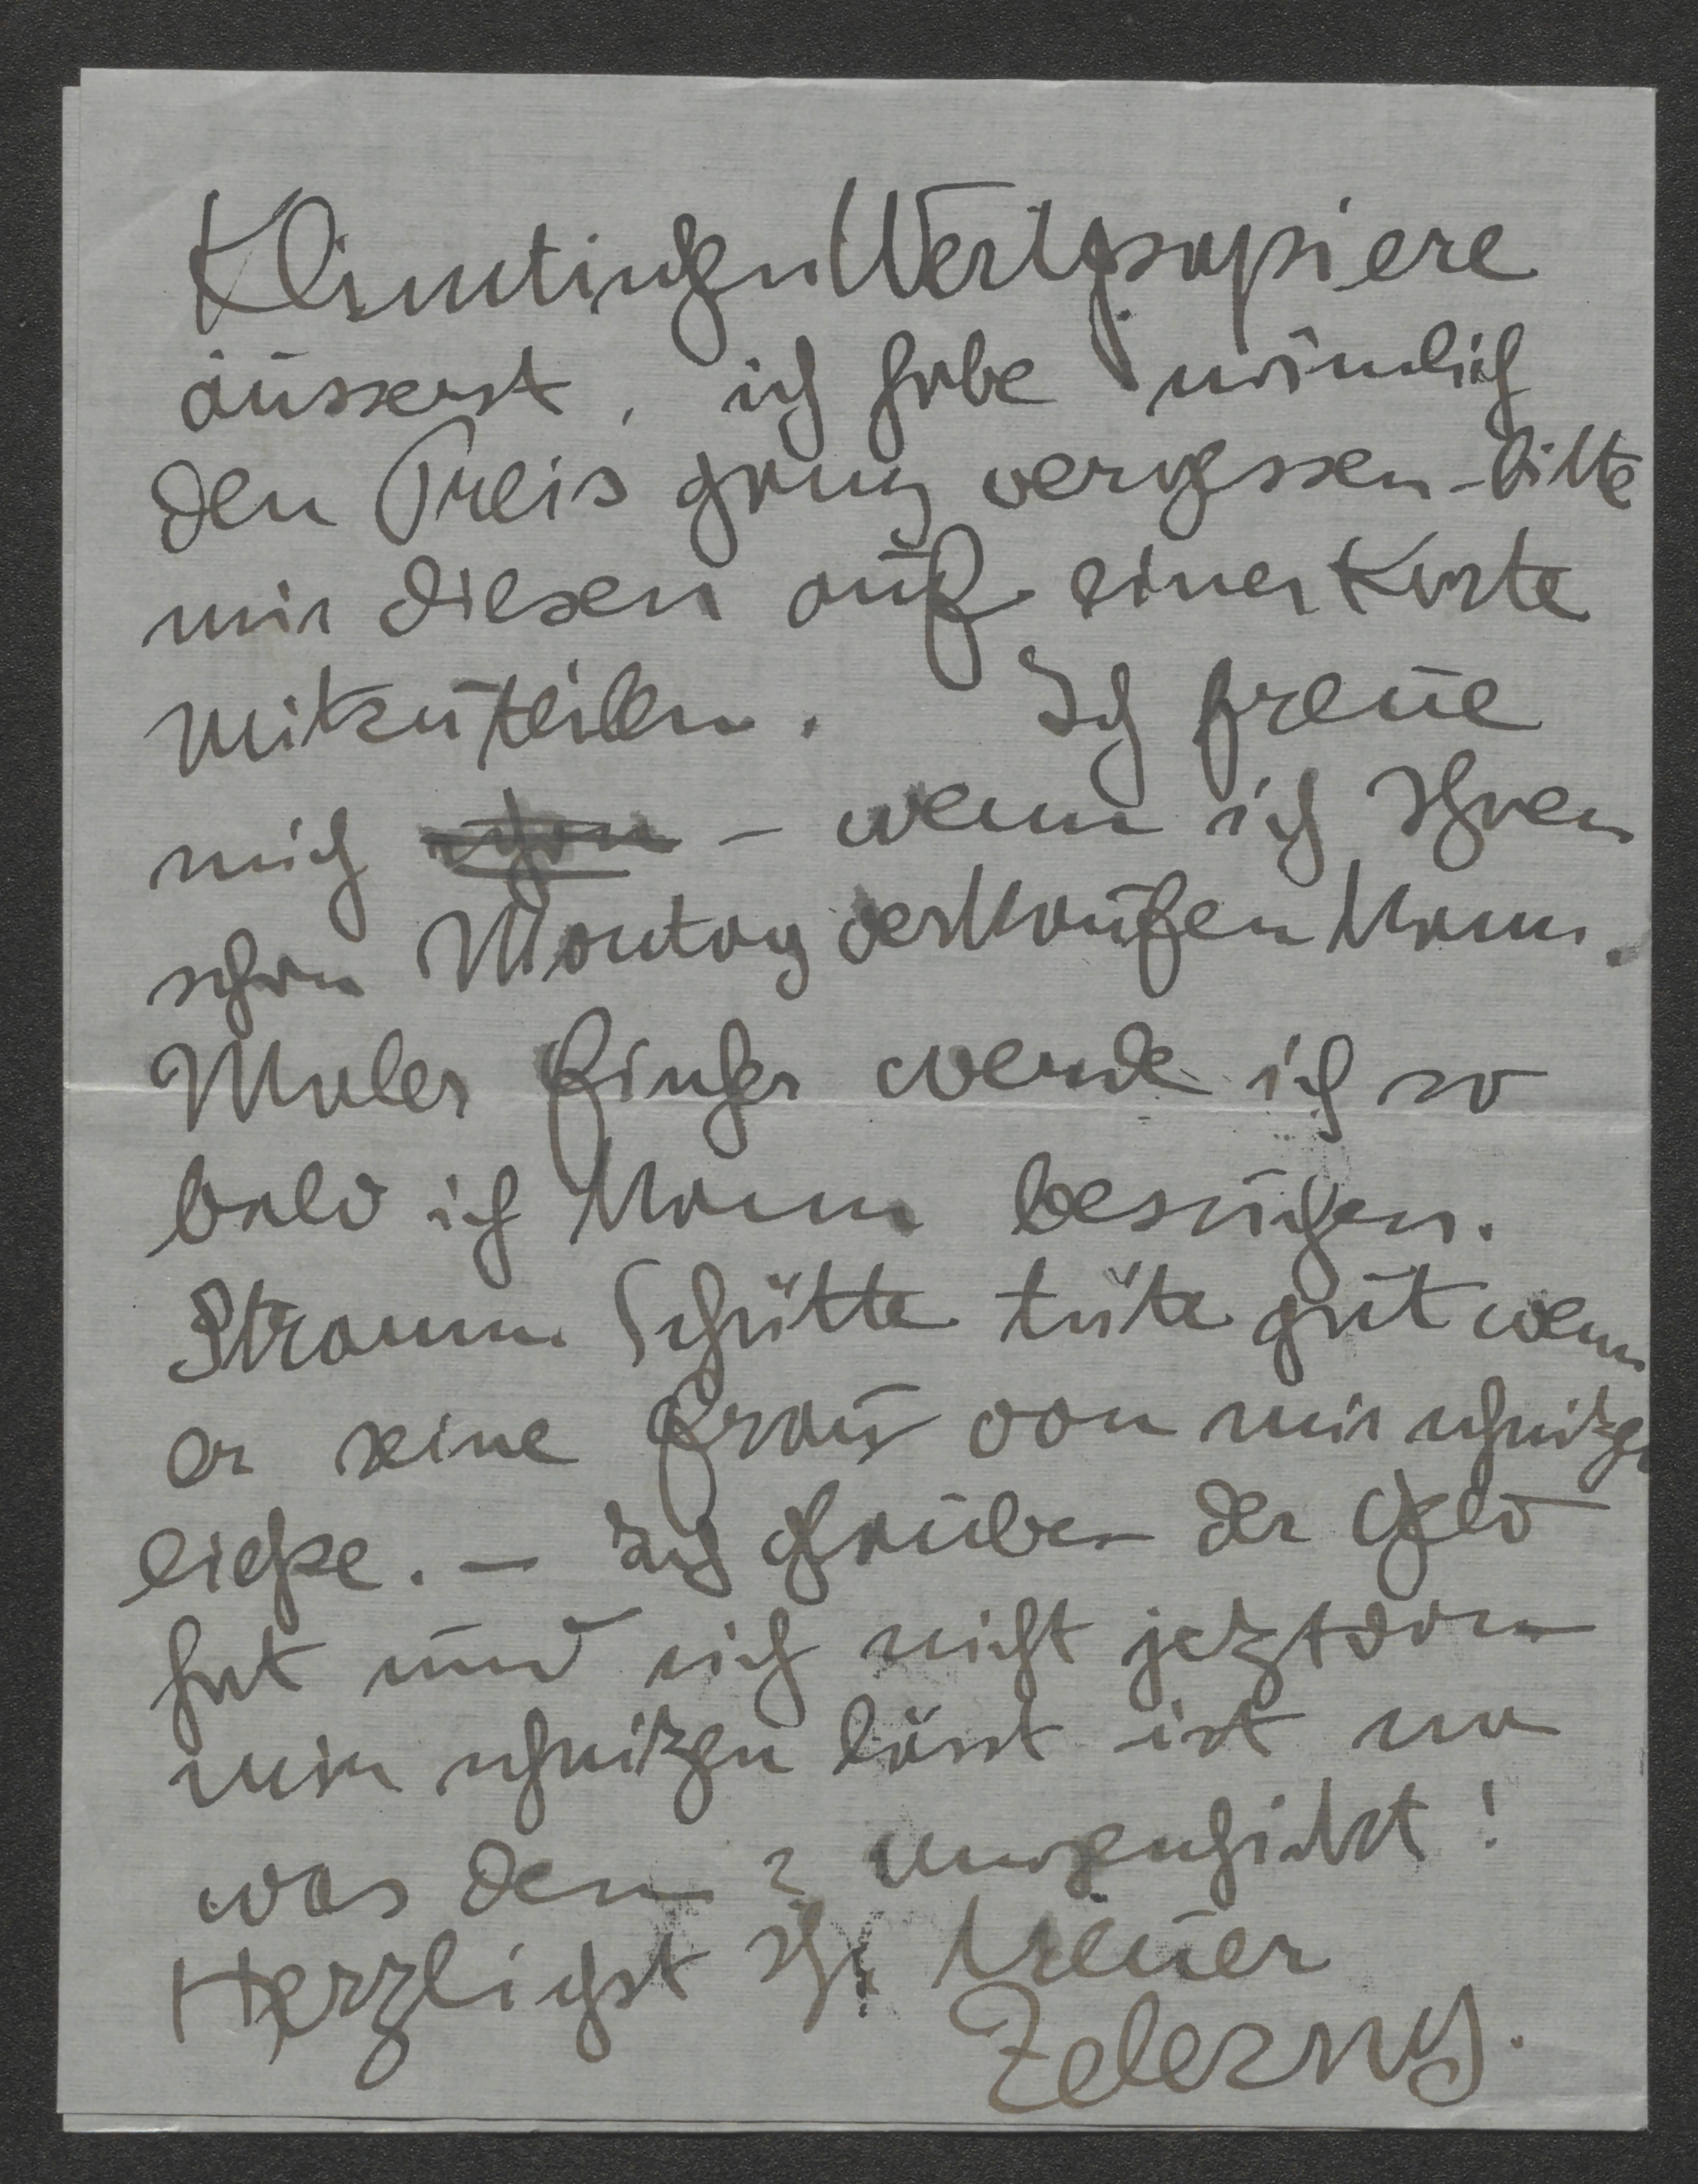 Klimtischen Wertpapiere
äusserst, ich habe nämlich
den Preis ganz vergessen - bitte
mir diesen auf einer Karte
mitzuteilen. Ich freue
mich schon - wenn ich Ihnen
schon Montag verkaufen kann.
Maler Fischer werde ich so
bald ich kann besuchen.
Stramm Schütte täte gut wenn
er seine Frau von mir schnitzen
liesse. - Ich glaube der Geld
hat und sich nicht jetzt von
mir schnitzen lässt ist na
was den? ungeschickt!
Herzlichst Ihr treuer
Zelezny.